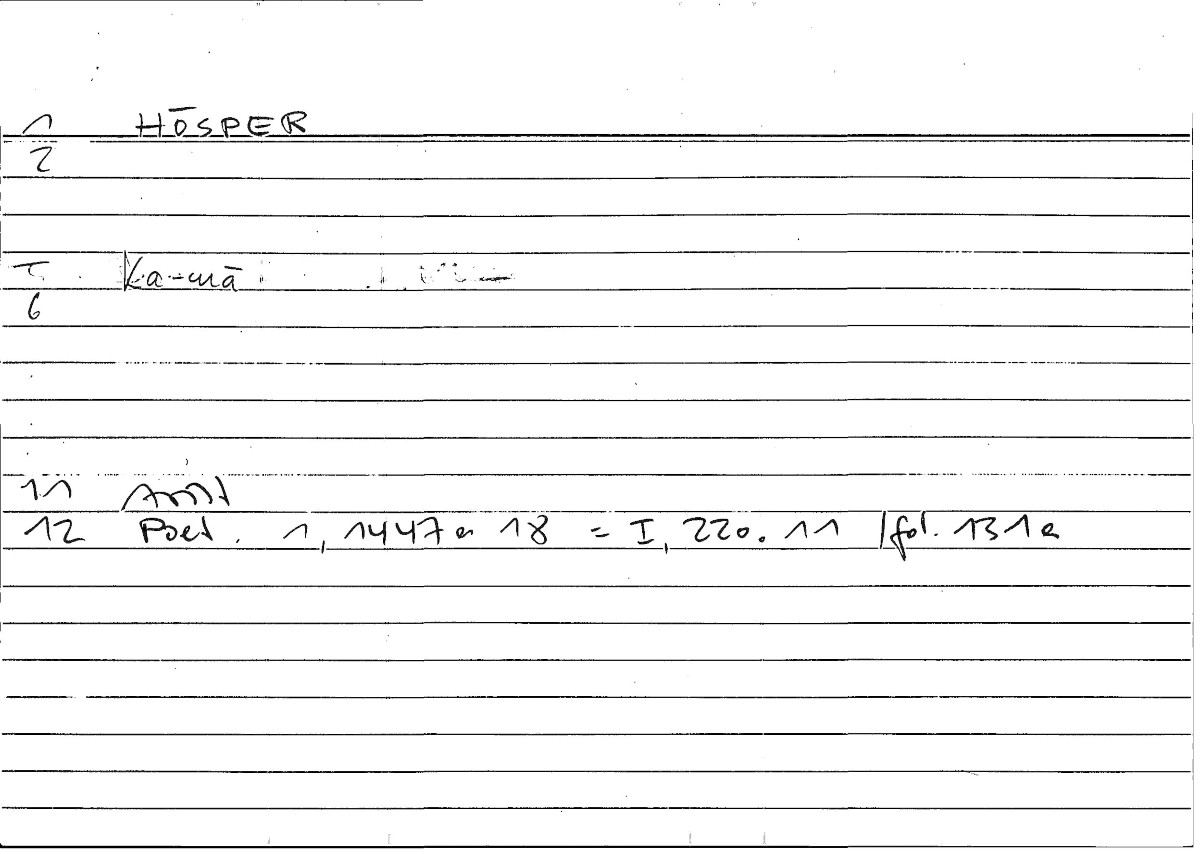 1 HŌSPER
2
5 Ka-mā
6
11 Arist
12 Poet. 1, 1447a 18 = I, 220.11 /fol. 131a